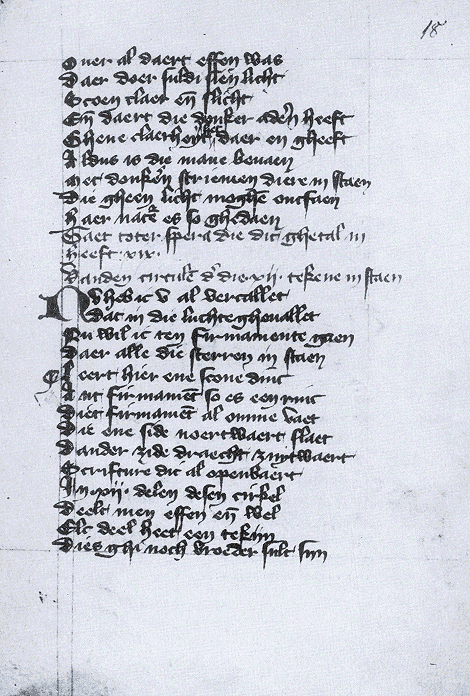 18
Ouer al daert effen was
Daer doer suldi sien licht
Scoen claer eñ slicht
Eñ daert die donker aderen heeft
Ghene claerheyt daer en gheeft
Aldus is die mane beuaen
Met donkeren striemen diere in staen
Die gheen licht moghen ontfaen
Haer es so ghedaen
Gaet toter spera die dit ghetal in
heeft .xix.
Vanden circule dͬ die .xij. tekene in staen
Nv heb ic v al vertallet
Dat in die lucht gheuallet
Nu wil ic ten firmamente gaen
Daer alle die sterren in staen
Leert hier ene scone dinc
Dat firmament so es een rinc
Die firmament al omme vaet
Die ene side noertwaert slaet
Dander zide draecht zuytwaert
Scrifture dit al openbaert
In .xij. delen desen cirkel
Deelt men effen eñ wel
Elc deel heet een tekijn
Dies ghi noch vroeder sult sijn